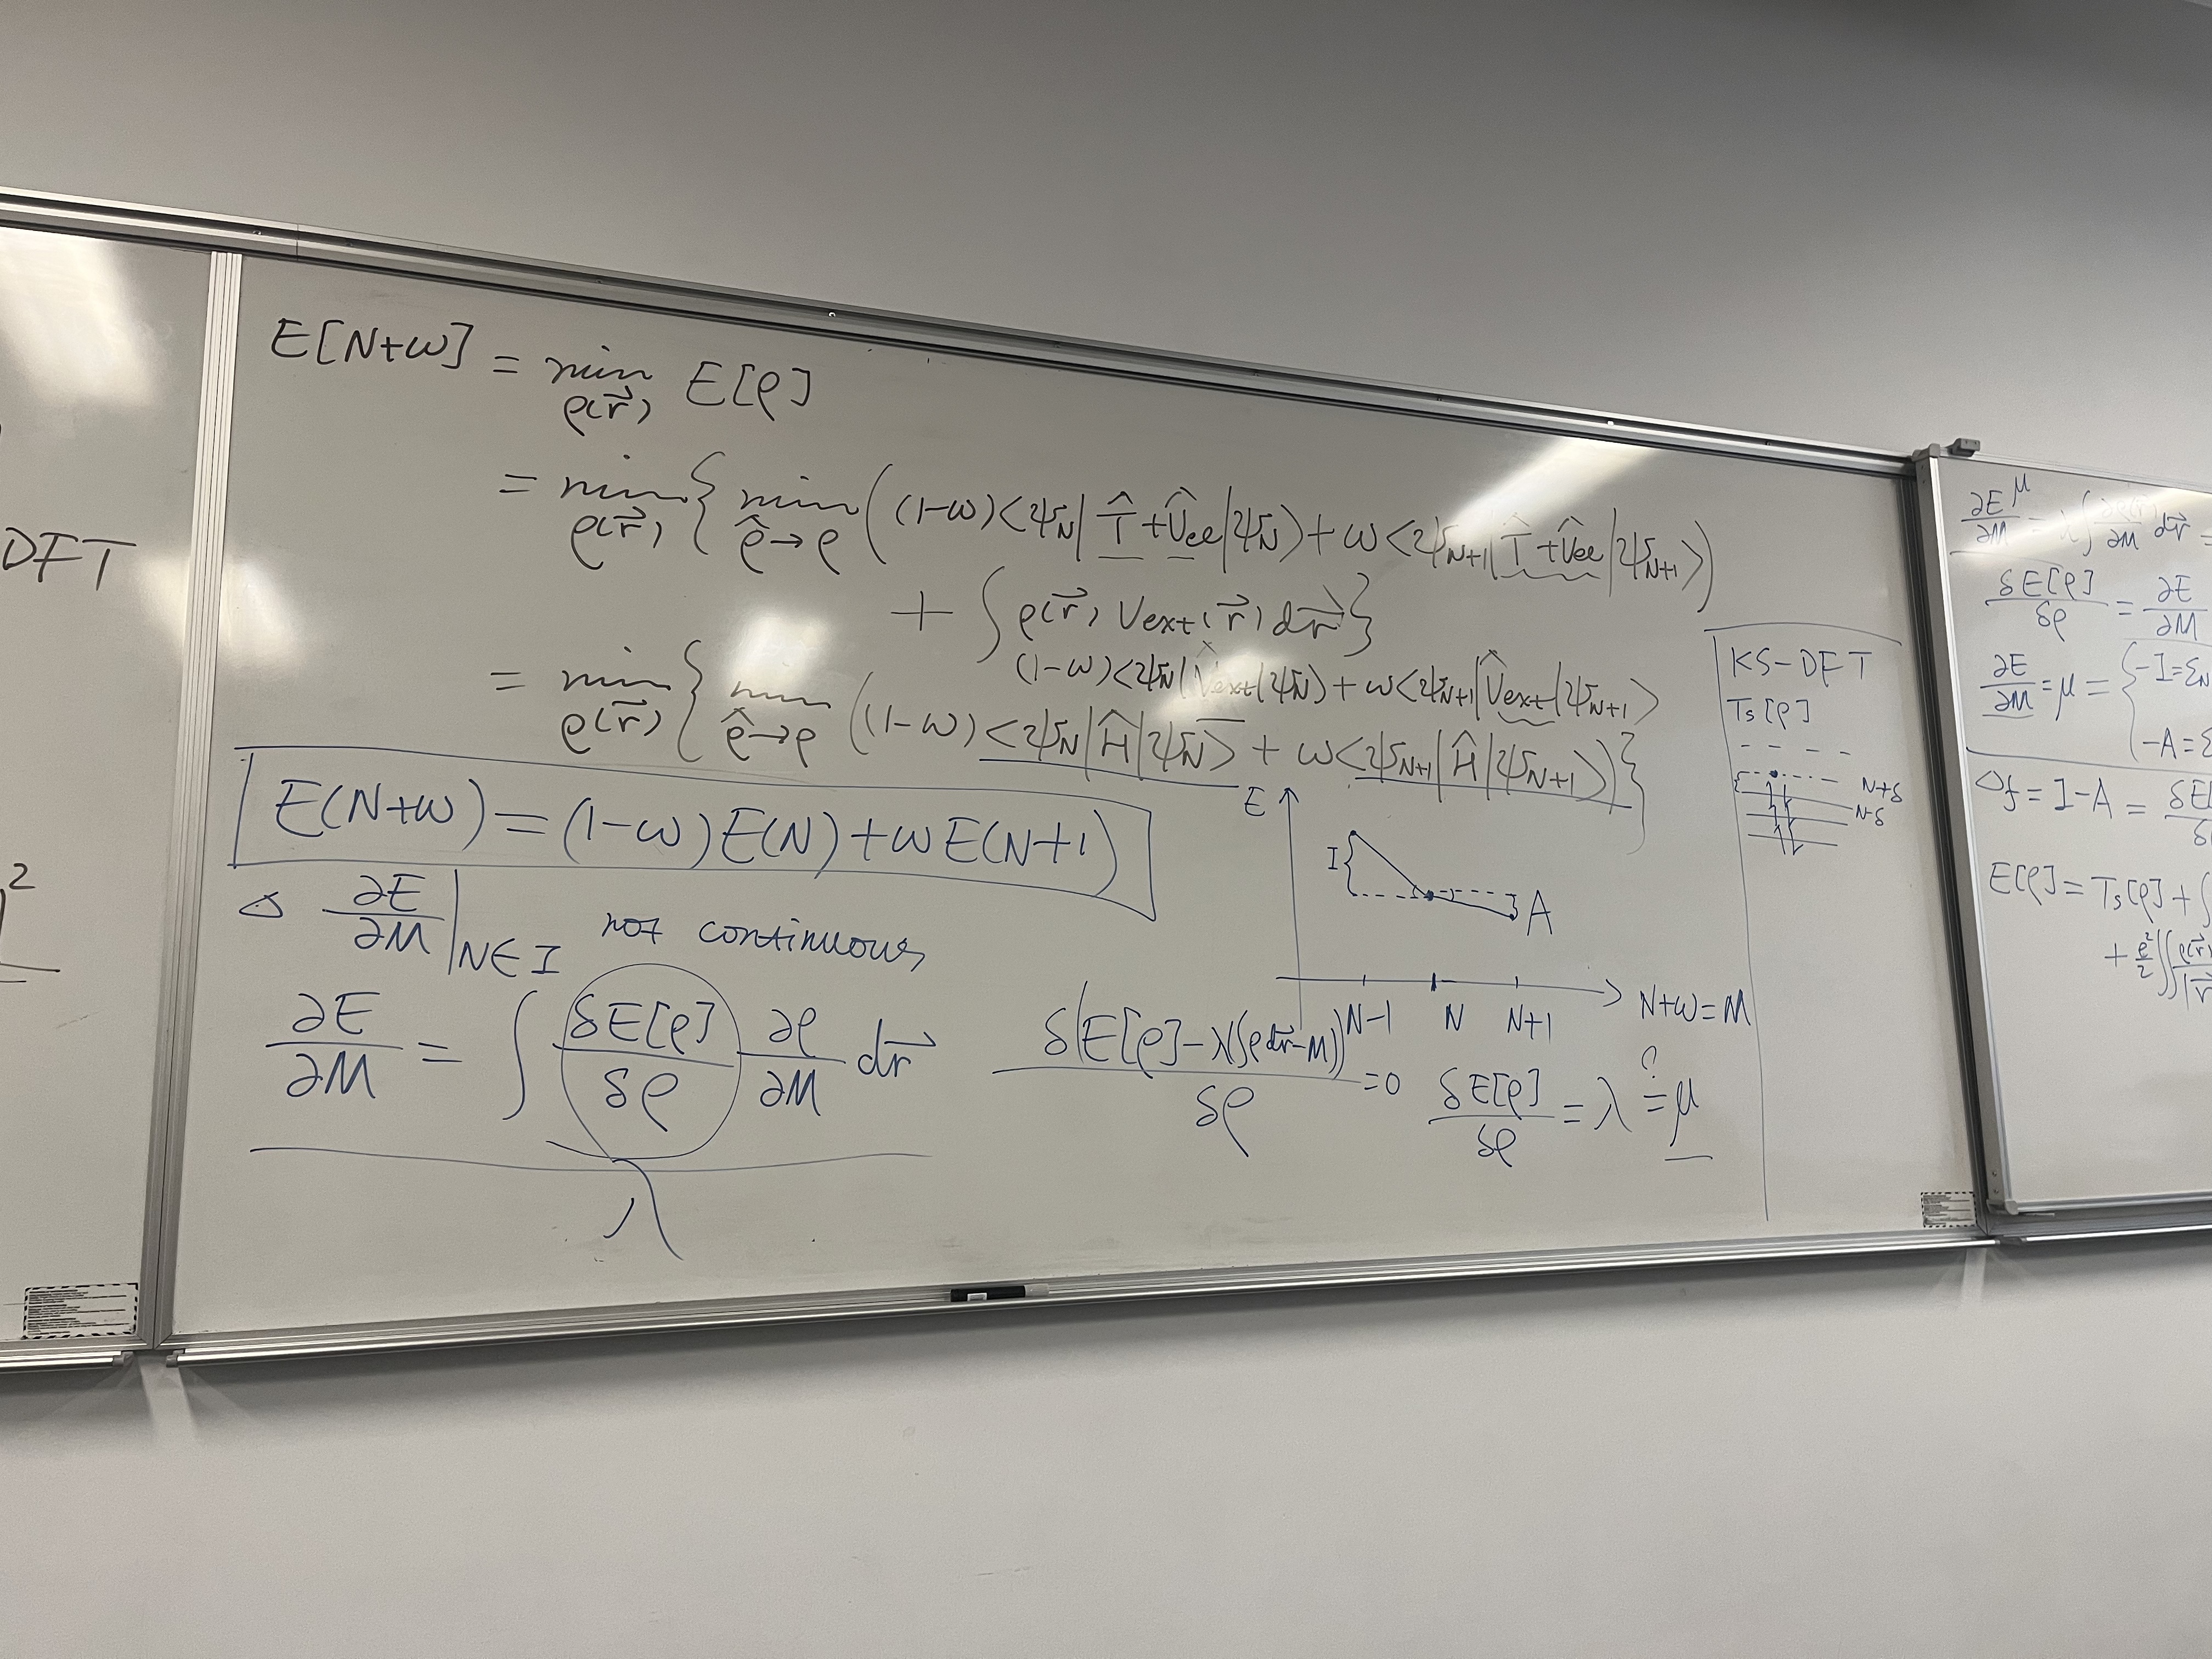 DFT
2
E[N+ω] = min E[ρ]
ρ(r⃗)
= min { min ( (1-ω)<ψ_N| T̂ + V̂ee |ψ_N> + ω<ψ_N+1| T̂ + V̂ee |ψ_N+1> )
ρ(r⃗) ρ̂→ρ
+ ∫ ρ(r⃗) Vext(r⃗) dr⃗ }
(1-ω)<ψ_N| V̂ext |ψ_N> + ω<ψ_N+1| V̂ext |ψ_N+1>
= min { min ( (1-ω) <ψ_N| Ĥ |ψ_N> + ω<ψ_N+1| Ĥ |ψ_N+1> ) }
ρ(r⃗) ρ̂→ρ
E(N+ω) = (1-ω)E(N) + ωE(N+1)
Δ ∂E/∂M |N∈I not continuous
∂E/∂M = ∫ δE[ρ]/δρ ∂ρ/∂M dr⃗
λ
E
I
A
N-1 N N+1
N+ω=M
δ(E[ρ]-λ(∫ρdr⃗-M))/δρ =0 δE[ρ]/δρ = λ ?= μ
KS-DFT
Ts[ρ]
N+δ
N-δ
∂E/∂M μ = λ∫ ∂ρ(r⃗)/∂M dr⃗ =
δE[ρ]/δρ = ∂E/∂M
∂E/∂M = μ = { -I=ε_N
-A=ε
Δf = I-A = δE[
E[ρ] = Ts[ρ] + ∫
+ e²/2 ∬ ρ(r⃗)/|r⃗